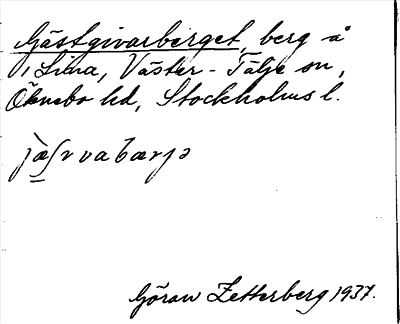 Gästgivarberget, berg å
Lina, Väster-Tälje sn,
Öknebo hd, Stockholms l.
Göran Zetterberg 1937.